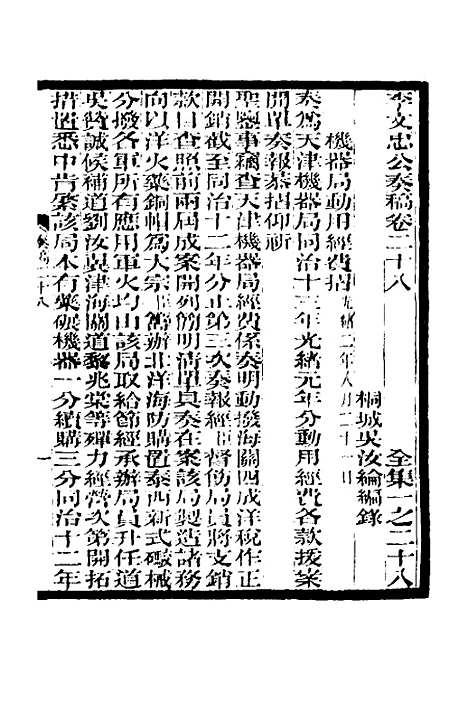 李文忠公奏稿卷二十八　全集一之二十八
桐城吳汝綸編錄
機器局動用經費摺光緒二年八月二十一日
奏爲天津機器局同治十三年光緒元年分動用經費各款援案
開單奏報恭摺仰祈
聖鑒事竊查天津機器局經費係奏明動撥海關四成洋稅作正
開銷截至同治十二年分止第三次奏報經臣督飭局員將支銷
款目查照前兩屆成案開列簡明清單具奏在案該局製造諸務
向以洋火藥銅帽爲大宗臣籌辦北洋海防購置泰西新式礮械
分撥各軍所有應用軍火均由該局取給節經承辦局員升任道
吳贊誠候補道劉汝翼津海關道黎兆棠等殫力經營次第開拓
措置悉中肯綮該局本有藥碾機器一分續購三分同治十二年
奏稿二十八
一